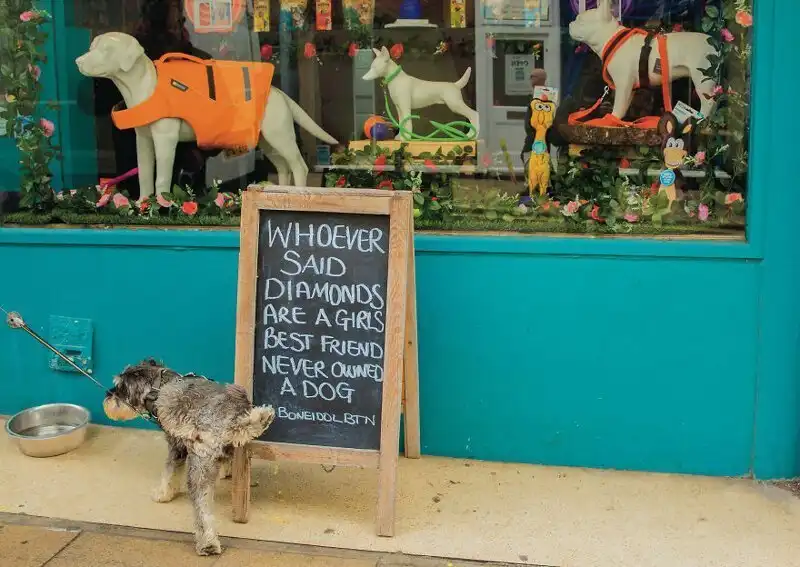 WHOEVER
SAID
DIAMONDS
ARE A GIRLS
BEST FRIEND
NEVER OWNED
A DOG
#BONEIDOLBTN